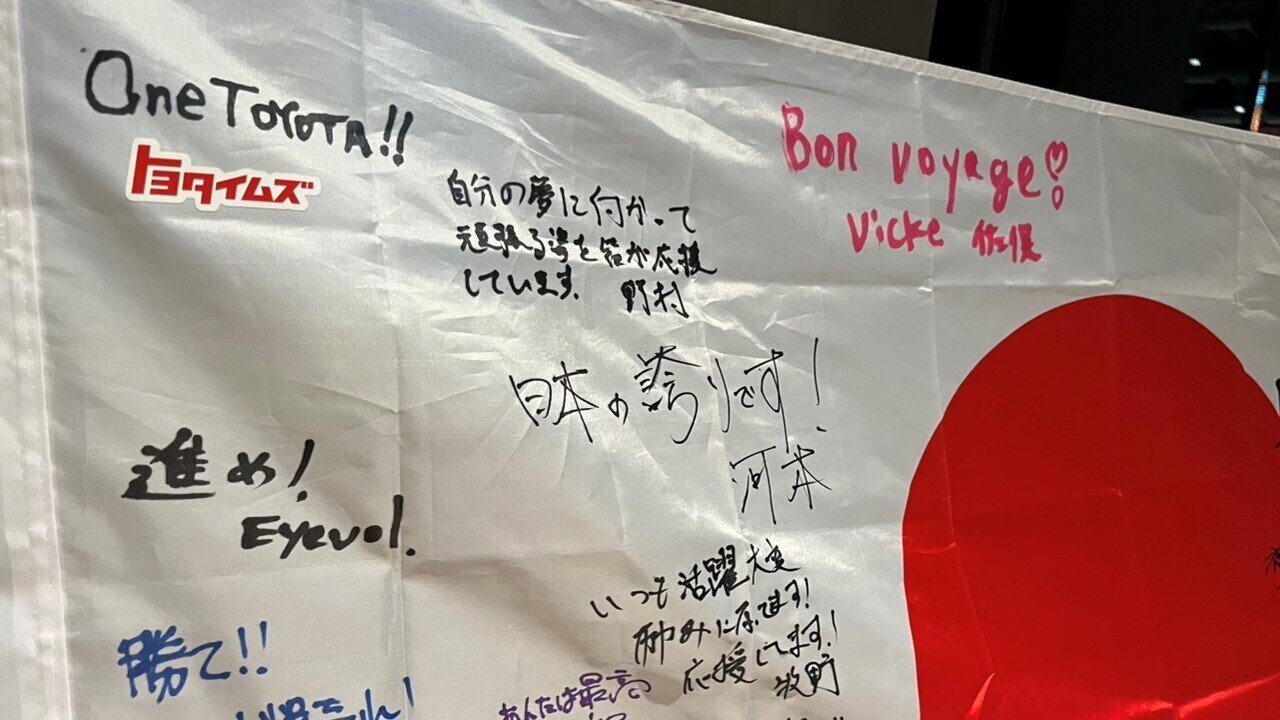 One TOYOTA!!
トヨタイムズ
自分の夢に向かって
頑張る姿を皆が応援
しています。 野村
Bon voyage!
Vicke 佐俣
日本の誇りです!
河本
進め!
Eyevol.
いつも活躍大変
励みに
応援してます!
牧野
勝て!!
あんたは最高